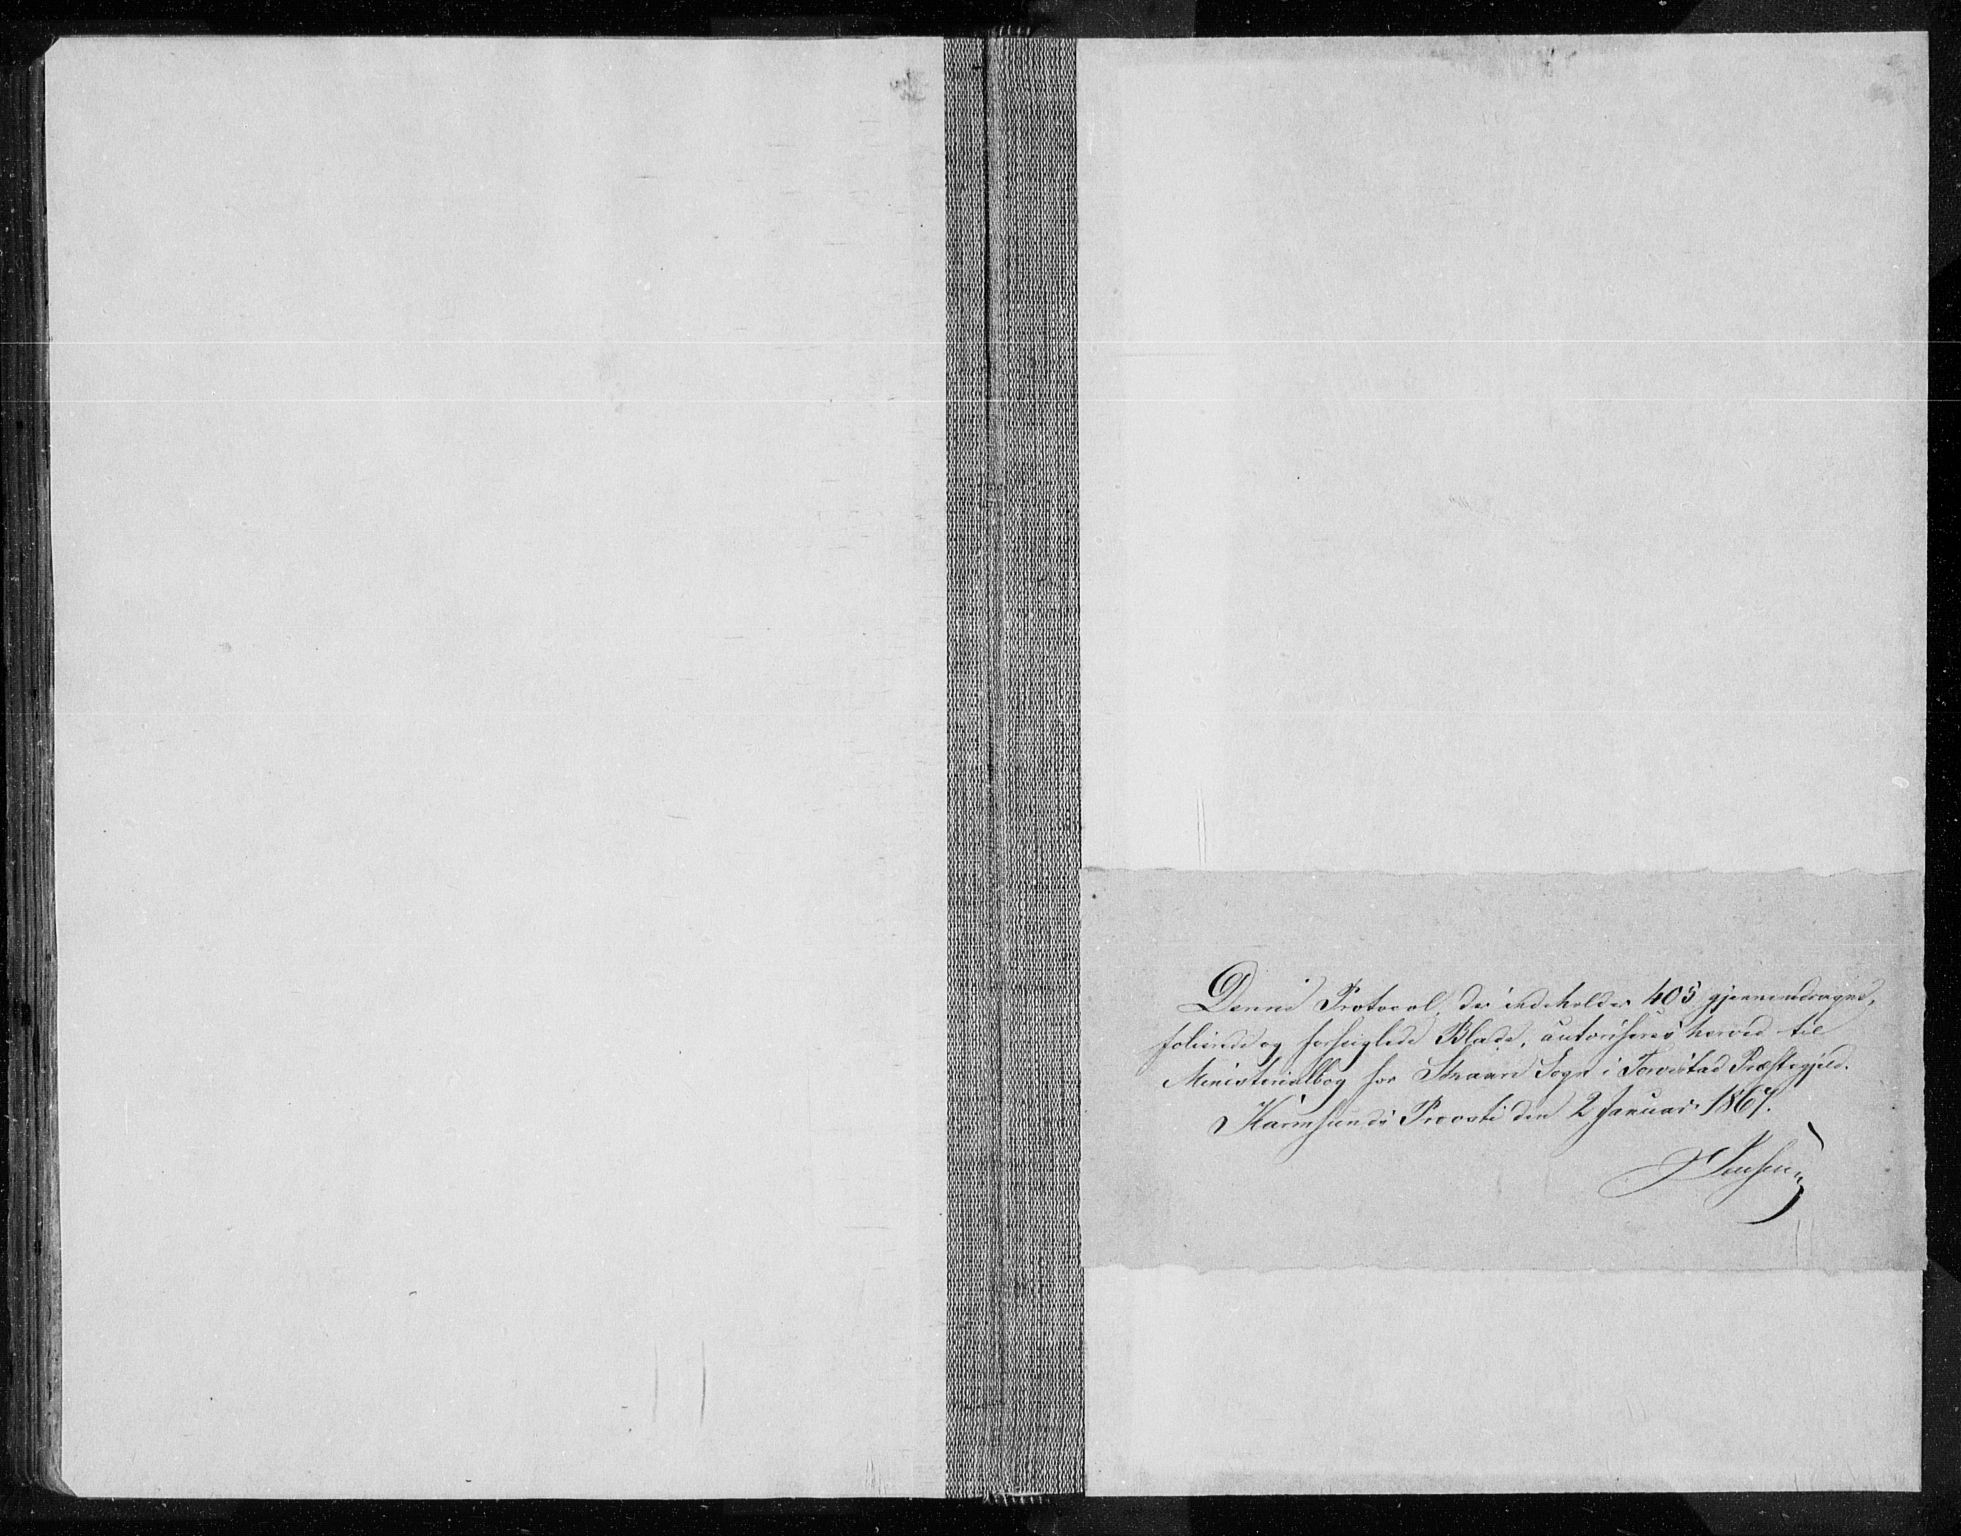 Denne Protocol, der indeholder 405 gjennemdragne,
folierede og forseiglede Blade, autoriseres herved til
Ministerialbog for Skaare Sogn i Torvestad Præstegjeld.
Karmsunds Provsti den 2 Januar 1867.